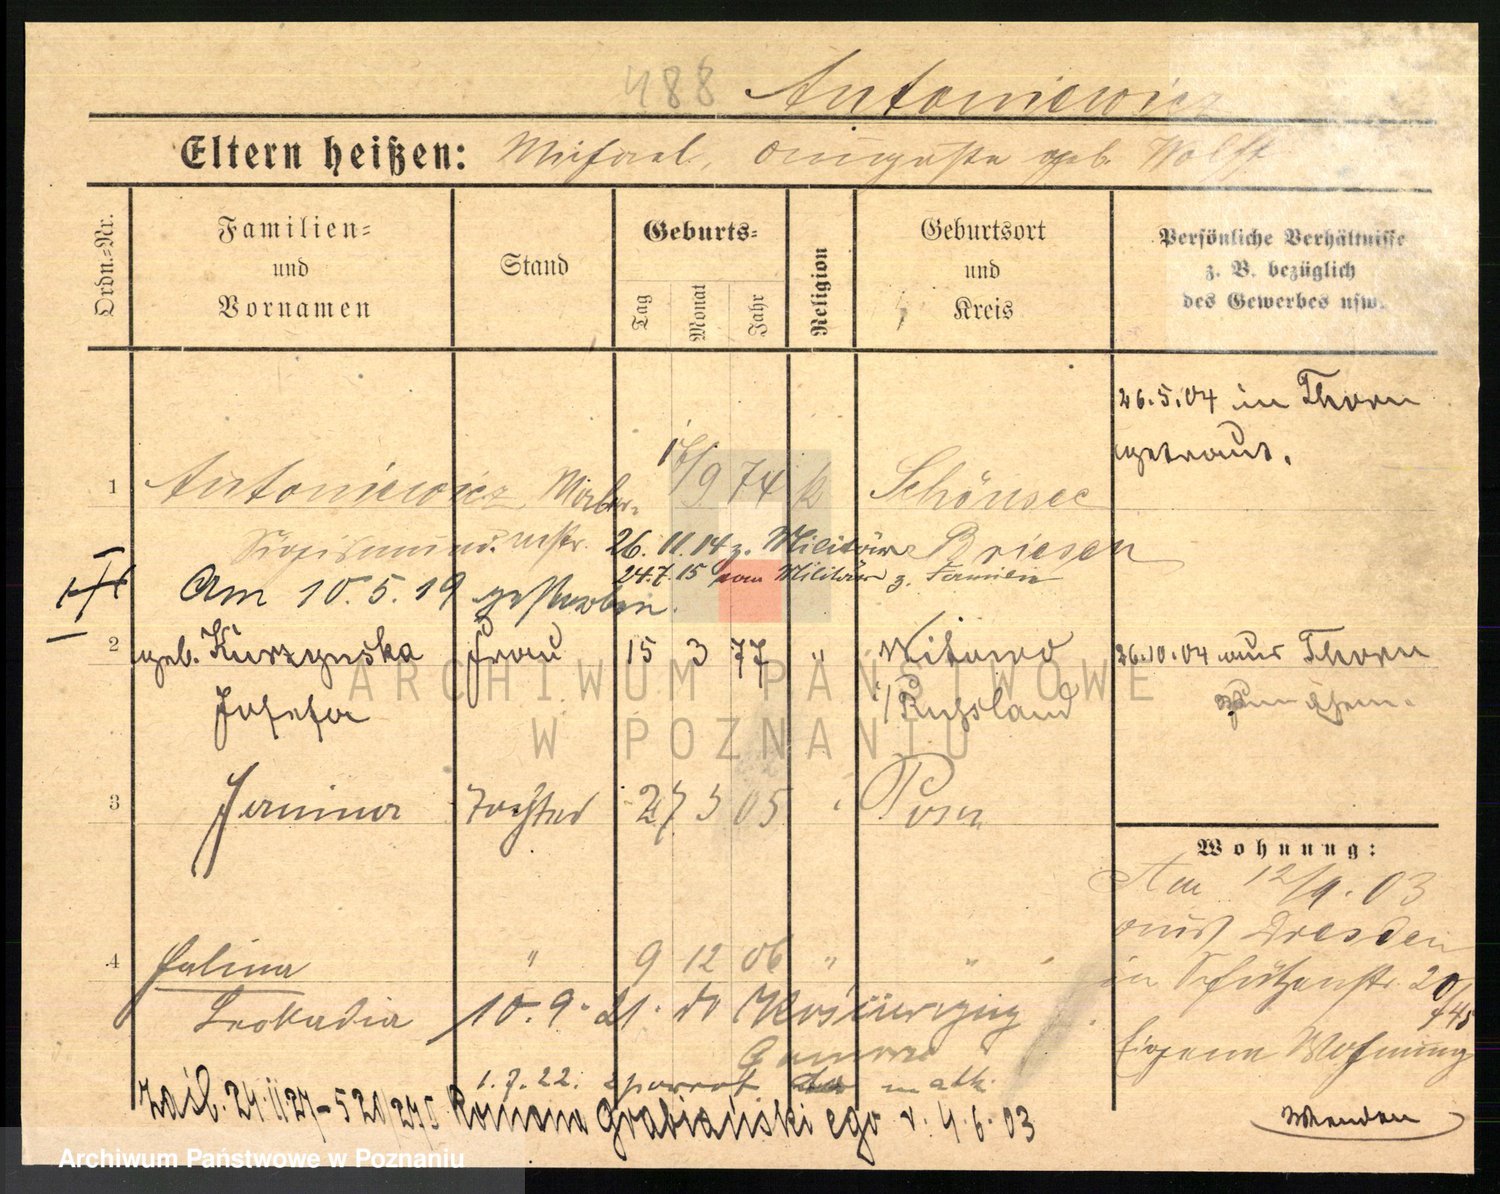 488 Antoniewicz
Eltern heißen: Michael, Auguste geb. Wolff
Ordn.-Nr.
Familien-
und
Vornamen
Stand
Geburts-
Tag
Monat
Jahr
Religion
Geburtsort
und
Kreis
Persönliche Verhältnisse
z. B. bezüglich
des Gewerbes usw.
26.5.04 in Thorn
getraut.
1 Antoniewicz 17/9 74 k Schönsee
Sigismund. 26.11.14 z. Militär Briesen
24.7.15 vom Militär z. Familie
Am 10.5.19 gestorben.
2 geb. Kurzynska Frau 15 3 77 " Witowo 26.10.04 aus Thorn
Josefa i/Russland
3 Janina Tochter 27 3 05 " Posen
Wohnung:
Am 12/9. 03
aus Dresden
4 Halina " 9 12 06 " "
in Schützenstr. 20/
Leokadia 10.9.21. do
Eigene Wohnung
1.7.22.
Romana Grabiański ego 4.6.03
ARCHIWUM PAŃSTWOWE
W POZNANIU
Archiwum Państwowe w Poznaniu